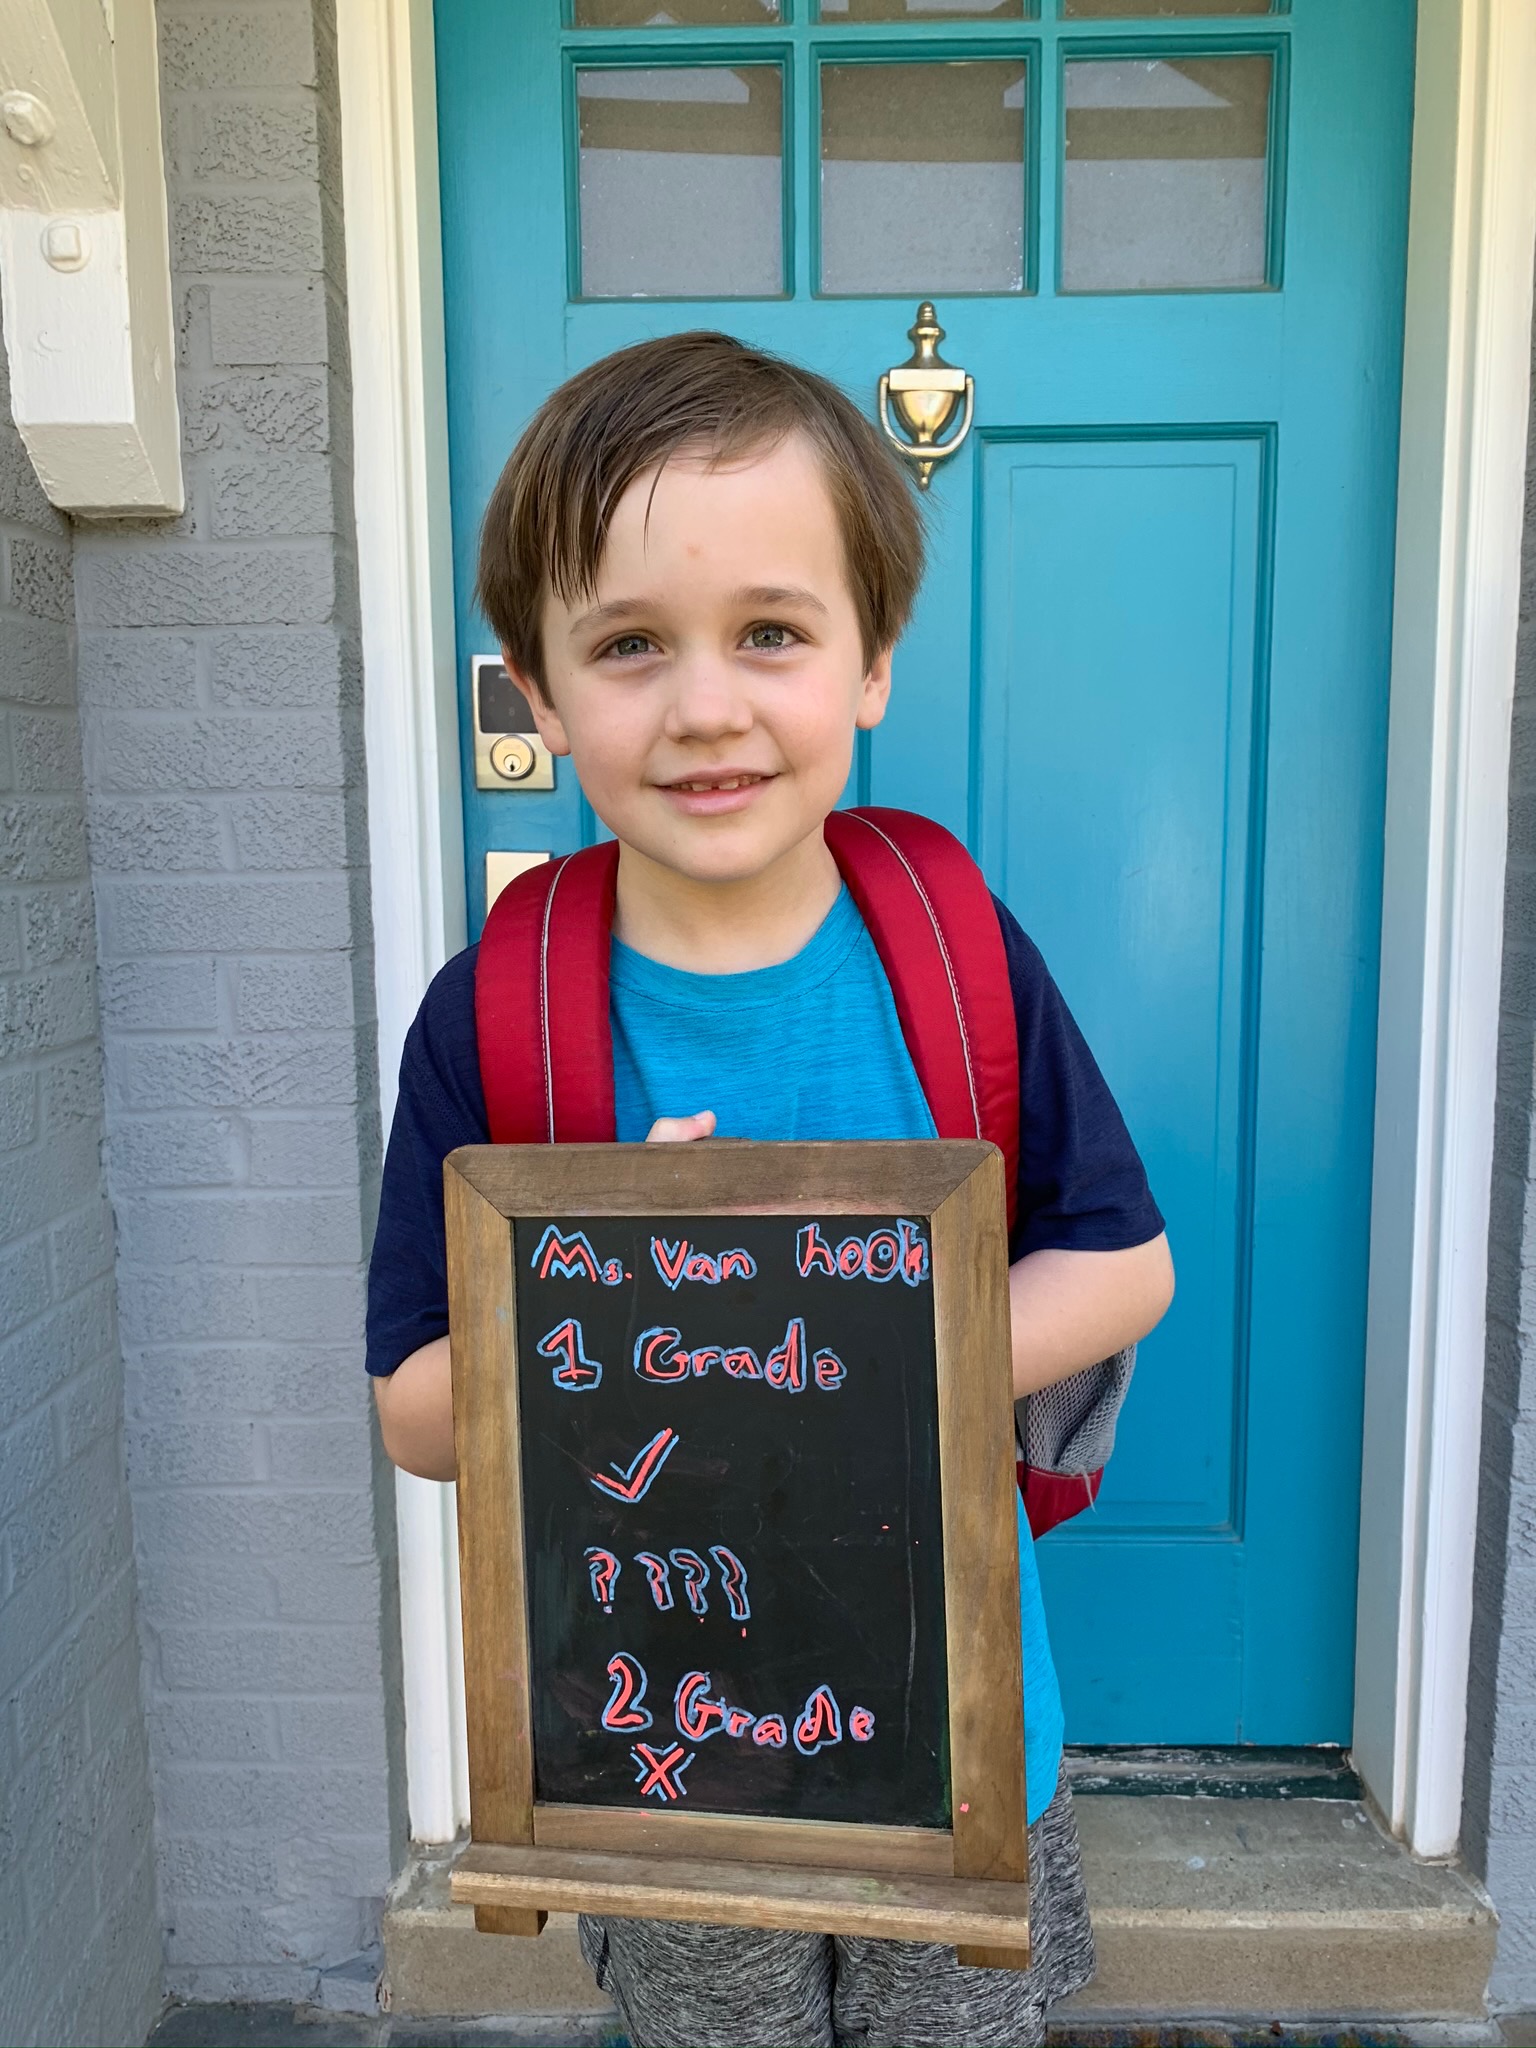 Ms. Van hook
1 Grade
✓
? ? ? ?
2 Grade
X